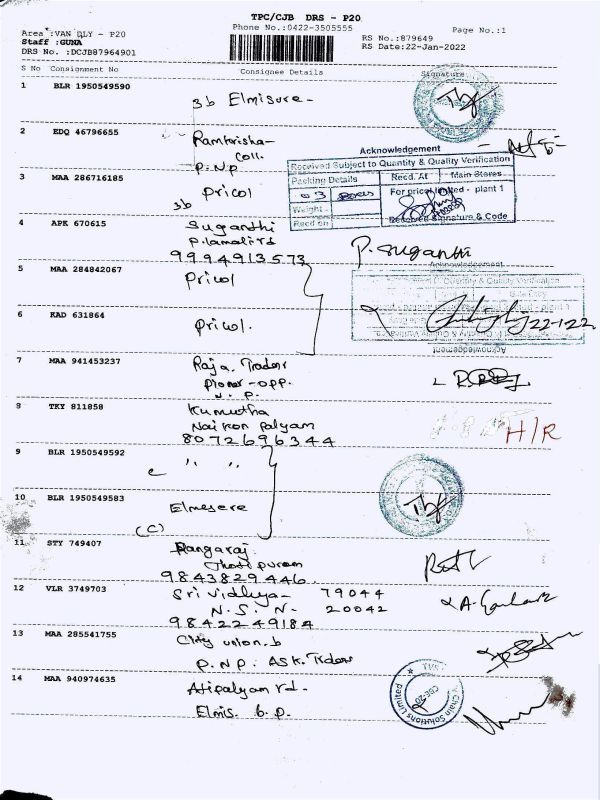 TPC/CJB DRS - P20
Area :VAN DLY - P20
Phone No.:0422-3505555
Page No.:1
Staff :GUNA
RS No.:879649
DRS No. :DCJB87964901
RS Date:22-Jan-2022
S No Consignment No Consignee Details Signature
1 BLR 1950549590
3b Elmisure-
2 EDQ 46796655
Ramkrisha-
Coll.
P.N.P
Acknowledgement
Received Subject to Quantity & Quality Verification
Packing Details Recd. At Main Stores
03 Boxes For pricol limited - plant 1
Weight
Recd on Received Signature & Code
3 MAA 286716185
Pricol
3b
4 APK 670615
Sugandhi
9994913573
P. Suganthi
5 MAA 284842067
Pricol
Acknowledgement
6 KAD 631864
Pricol.
22-1-22
Acknowledgement
7 MAA 941453237
Raja. Traders
Pioner-opp.
N. P.
8 TKY 811858
Kumutha
Naikon Palyam
8072696344
H/R
9 BLR 1950549592
" "
10 BLR 1950549583
Elmesere
(C)
11 STY 749407
Rangaraj
Thotipuram
9843829446
12 VLR 3749703
Sri Vidhya- 79044
N.S.N- 20042
9842249184
13 MAA 285541755
City union.b
P.N.P. ASK. Traders
14 MAA 940974635
Atipalyam rd.
Elmis. b.p.
Chain Solutions Limited